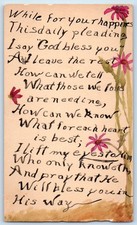 While for your happiness
This daily pleading
I say God bless you
And leave the rest
How can we tell
What those we love
are needing,
How can we know
What for each heart
is best,
I lift my eyes to Him
Who only knoweth
And pray that He
Will bless you in
His way